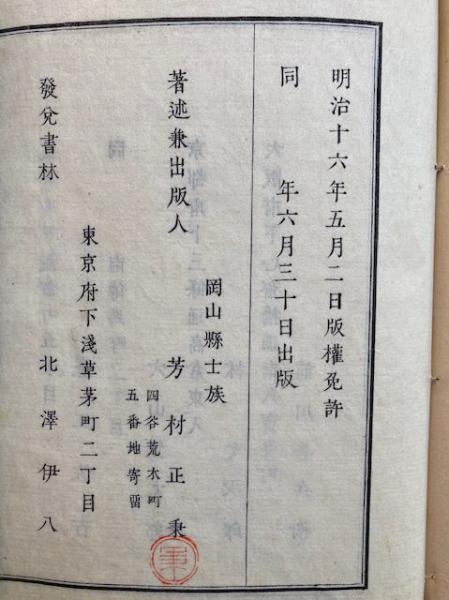 明治十六年五月二日版權免許
同　年六月三十日出版
岡山縣士族
著述兼出版人　芳村正秉
四谷荒木町
五番地寄畱
東京府下淺草茅町二丁目
發兌書林　北澤伊八